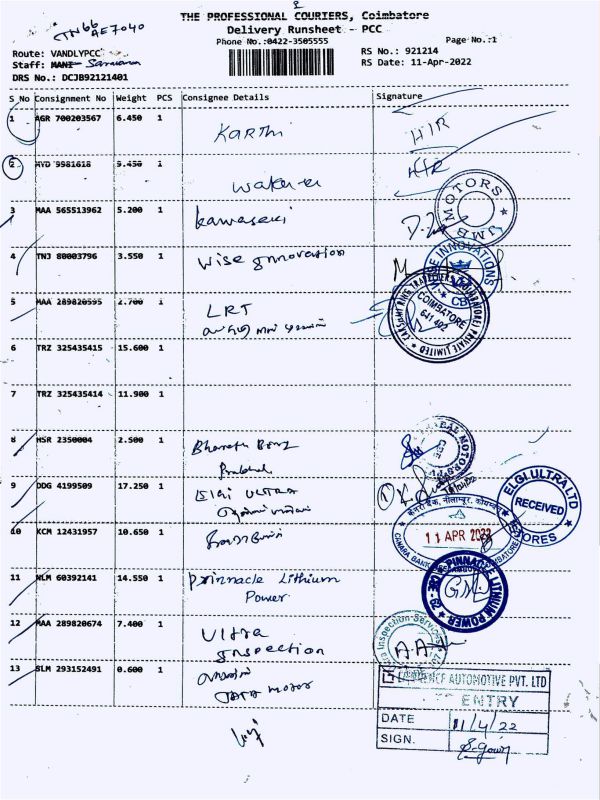 THE PROFESSIONAL COURIERS, Coimbatore
Delivery Runsheet - PCC
Phone No.:0422-3505555
Page No.:1
Route: VANDLYPCC
RS No.: 921214
Staff: MANI Saravanan
RS Date: 11-Apr-2022
DRS No.: DCJB92121401
S No Consignment No Weight PCS Consignee Details Signature
1 AGR 700203567 6.450 1 Karthi HIR
2 HYD 9981618 5.450 1 HIR
3 MAA 565513962 5.200 1 kawasaki
JMB MOTORS
4 TNJ 80003796 3.550 1 Wise Innovation
WISE INNOVATIONS
CBE
5 MAA 289820595 2.700 1 LRT
LAKSHMI RING TRAVELLERS (COIMBATORE) PRIVATE LIMITED
COIMBATORE
641 402
6 TRZ 325435415 15.600 1
7 TRZ 325435414 11.900 1
8 HSR 2350004 2.500 1 Bharath Benz
9 DDG 4199509 17.250 1 Elgi ULTRA
ELGI ULTRA LTD
RECEIVED
STORES
10 KCM 12431957 10.650 1
केनरा बैंक, नीलाम्बूर, कोयम्बत्तूर
11 APR 2022
CANARA BANK
11 NLM 60392141 14.550 1 Pinnacle Lithium
Power
PINNACLE LITHIUM POWER
12 MAA 289820674 7.400 1 Ultra
Inspection
Inspection Services
13 SLM 293152491 0.600 1
Tata motor
AUTOMOTIVE PVT. LTD
ENTRY
DATE 11/4/22
SIGN.